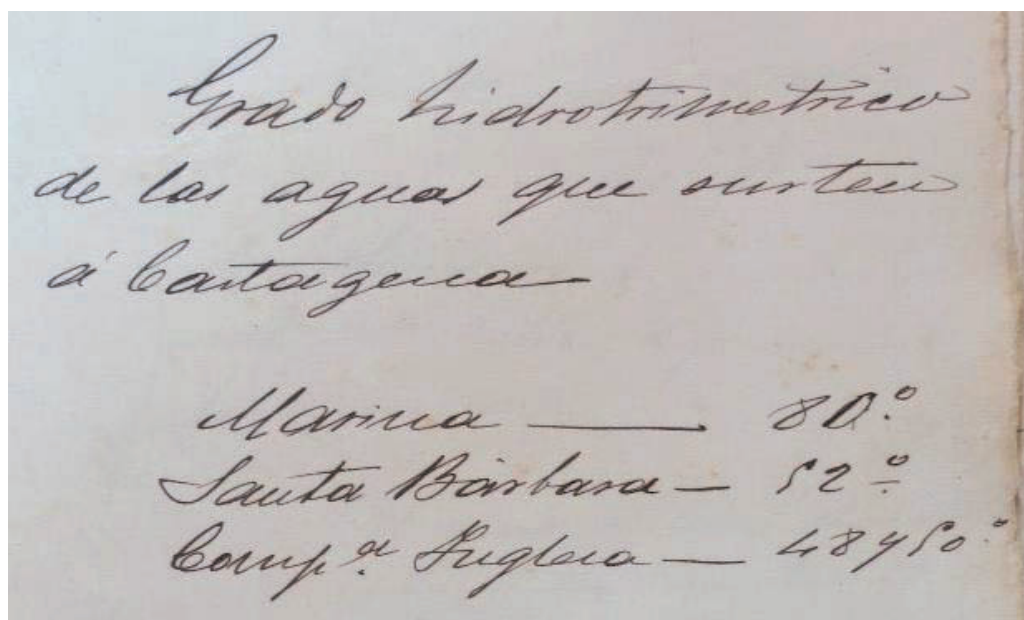 Grado hidrotrimetrico
de las aguas que surten
á Cartagena
Marina — 80.º
Santa Bárbara — 52º
Compª. Inglesa — 48 y 50.º